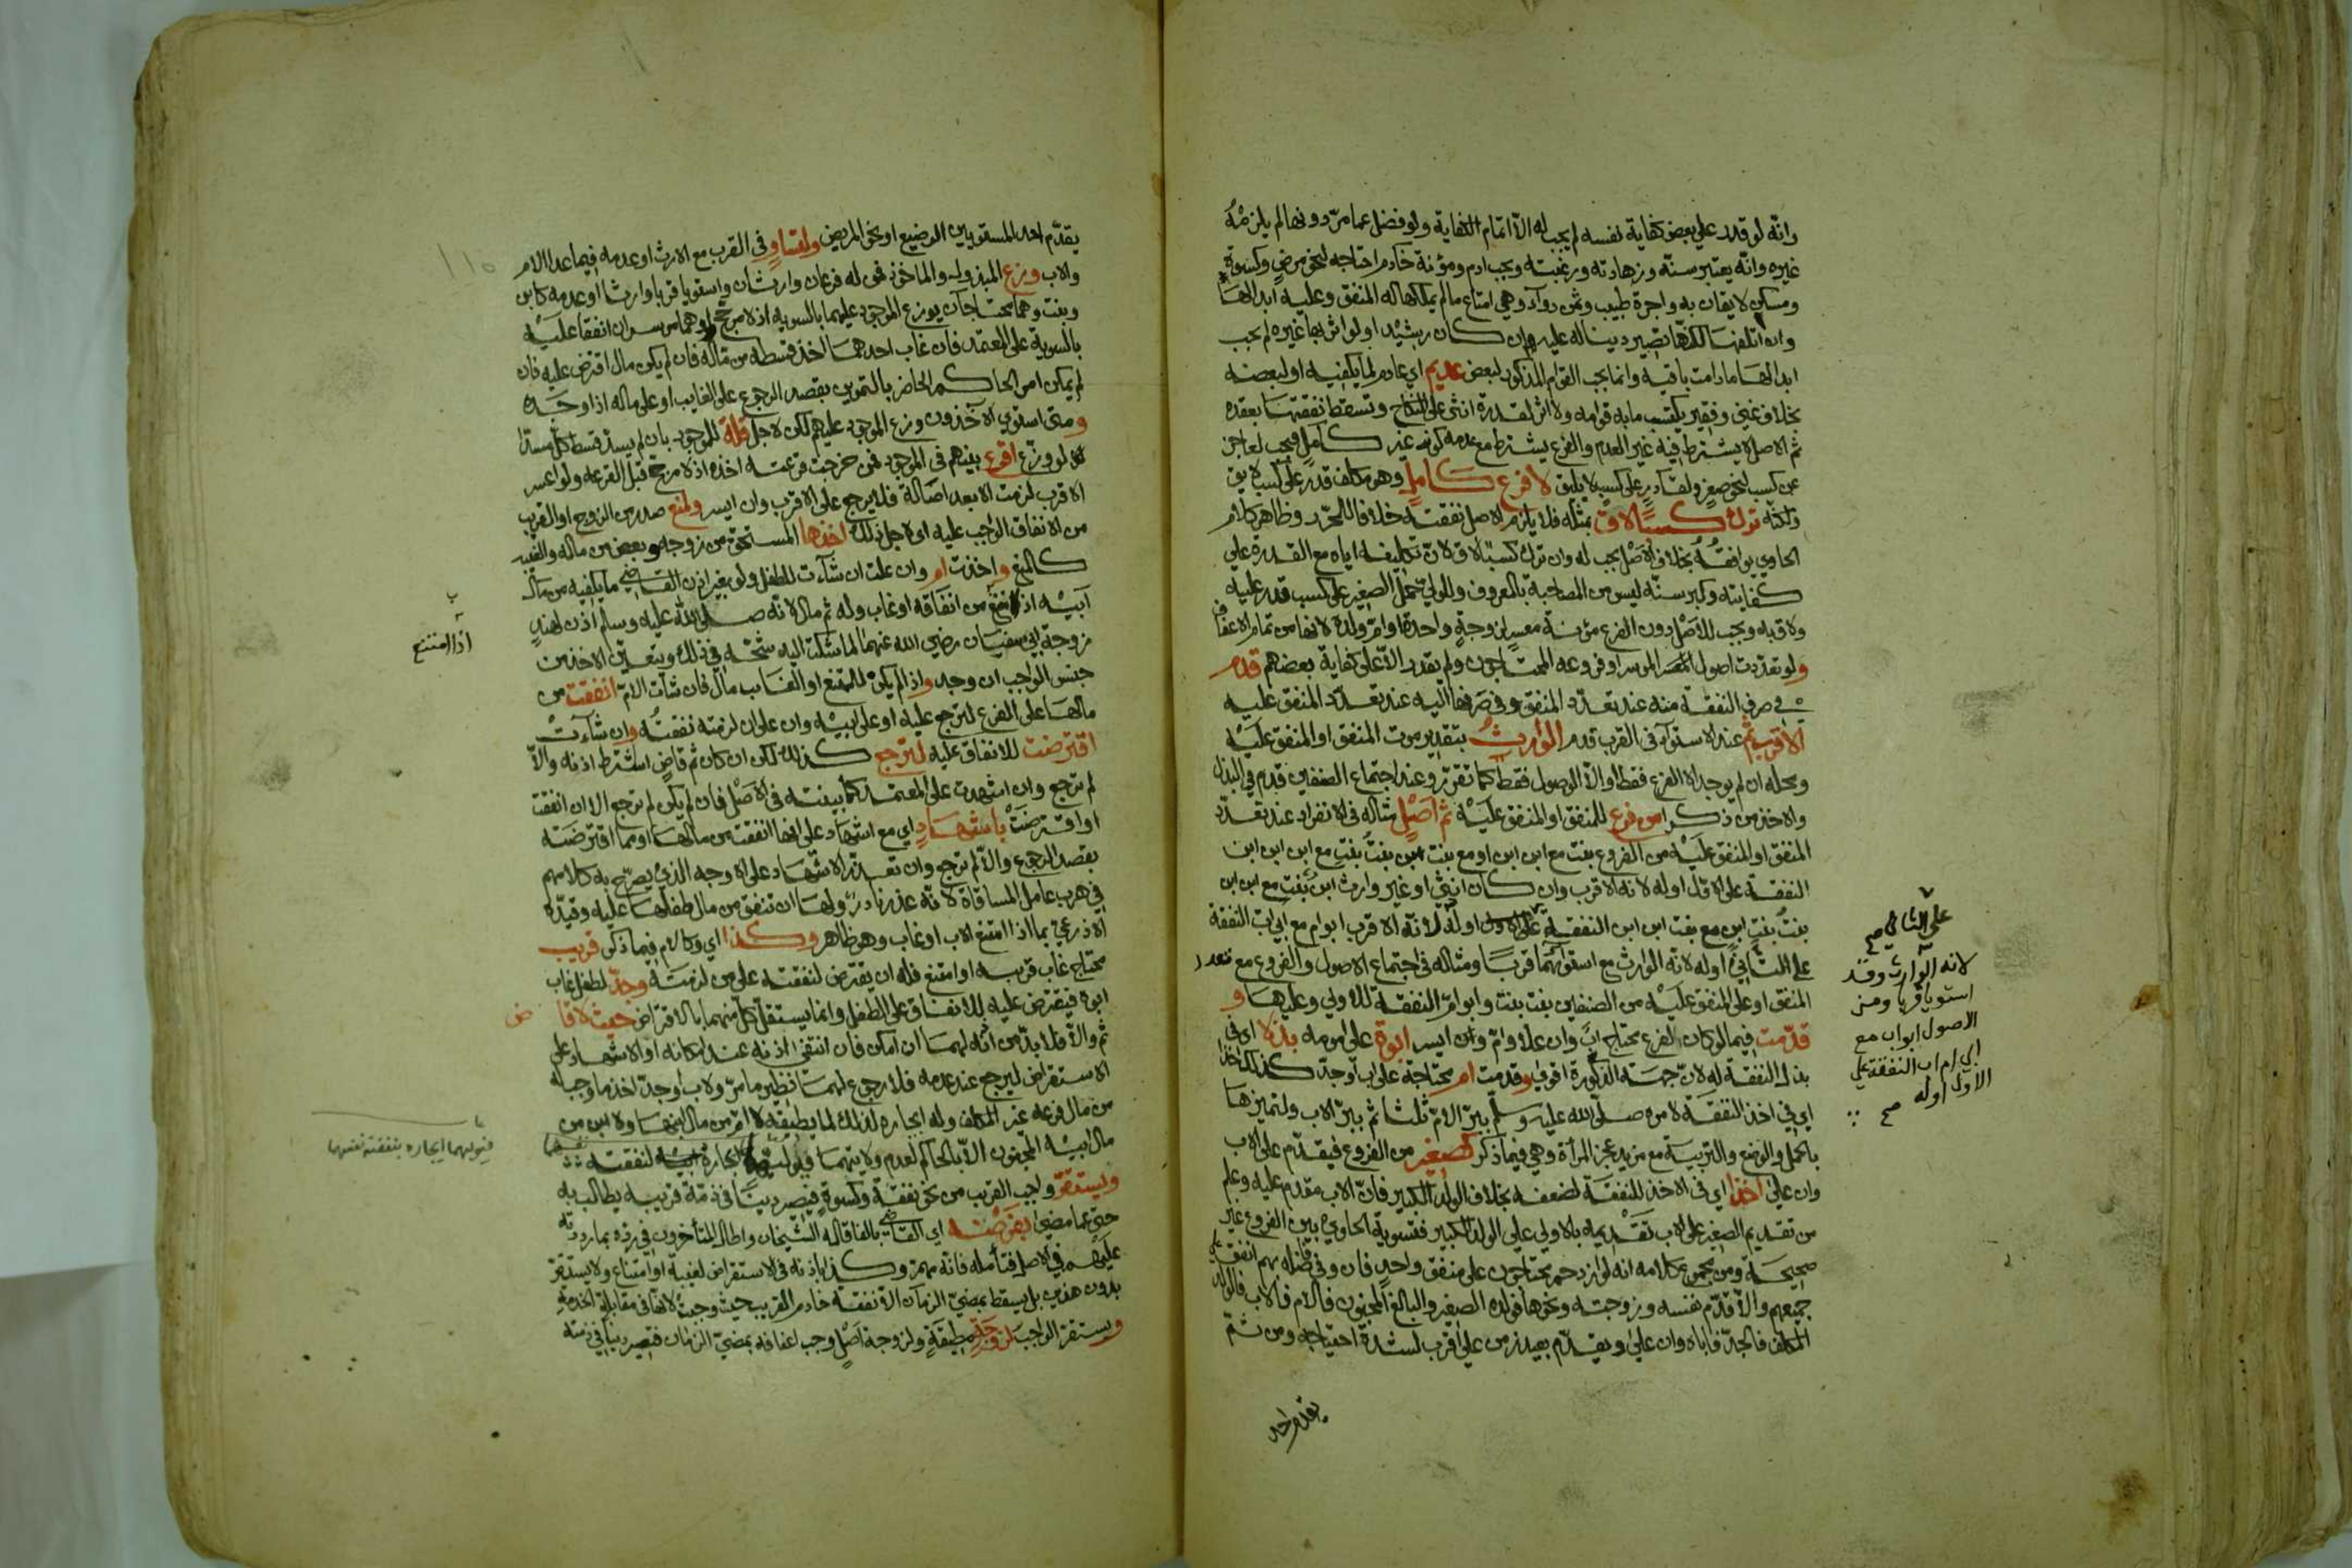 وانه لو قدر علي بعض كفاية نفسه لم يجب له الا اتمام الكفاية ولو فضل عما مر دونها لم يلزمه
غيره وانه يعتبر سنه وزهادته ورغبته ويجب ادم ومؤنة خادم احتاجه لنحو مرض وكسوة
ومسكن لايقان به واجرة طبيب وثمن دوآء وهي امتاع مالم يملكها له المنفق وعليه ابدالها
وان اتلفها لكنها تصير دينا له عليه وان كان رشيدا ولو اثر بها غيره لم يجب
ابدالها مادامت باقية وانما يجب القوام المذكور لبعض عديم اي عادم لما يكفيه او لبعضه
بخلاف غني وفقير يكتسب مابه قوامه ولا اثر لقدرة انثى على النكاح وتسقط نفقتها بعقده
ثم الاصل لا يشترط فيه غير العدم والفرع يشترط مع عدمه كونه غير كامل فيجب لعاجز
عن كسب لنحو صغر ولقادر على كسب لا يليق لا فرع كامل وهو مكلف قدر على كسب لايق
ولكنه ترك كسبا لاق بمثله فلا يلزم الاصل نفقته خلافا للمحرر وظاهر كلام
الحاوي يوافقه بخلاف اصل يجب له وان ترك كسبا لاق لان تكليفه اياه مع القدرة علي
كفايته وكبر سنه ليس من المصاحبة بالمعروف وللولي حمل الصغير على كسب قدر عليه
ولاق به ويجب للاصل دون الفرع مؤنة معسر لزوجة واحدة او ام ولد لانها من تمام الاعفاف
ولو تعددت اصول الموسر او فروعه المحتاجون ولم يقدر الا على كفاية بعضهم قدم
في صرف النفقة منه عند تعدد المنفق وفي صرفها اليه عند تعدد المنفق عليه
الاقرب ثم عند الاستوآء في القرب قدم الوارث بتقدير موت المنفق او المنفق عليه
ومحله ان لم يوجد الا الفرع فقط او الا الوصول فقط كما تقرر وعند اجتماع الصنفين قدم في البذل
والاخذ من ذكر من فرع للمنفق او المنفق عليه ثم اصل مثاله في الانفراد عند تعدد
المنفق او المنفق عليه من الفروع بنت مع ابن ابن او مع بنت ابن بنت بنت مع ابن ابن ابن
النفقة على الاول اوله لانه الاقرب وان كان انثى او غير وارث ابن بنت مع ابن ابن
بنت بنت ابن مع بنت ابن ابن النفقة على الاول اوله لانه الاقرب ابو ام مع ابي اب النفقة
على الثاني اوله لانه الوارث مع استوآئهما قربا ومثاله في اجتماع الاصول والفروع مع تعدد
المنفق او علي المنفق عليه من الصنفين بنت بنت وابو ام النفقة للاولي وعليها و
قدمت فيما لو كان الفرع محتاج اب وان علا وام وان ايسر ابوة على امومة بذلا اي في
بذل النفقة له لان جهته الذكورة اقوي وقدمت ام محتاجة على اب اوجد كذلك اخذا
اي في اخذ النفقة لامره صلى الله عليه وسلم ببر الام ثلثا ثم ببر الاب ولتميزها
بالحمل والوضع والتربية مع مزيد عجز المرأة وهي فيما ذكر كصغير من الفروع فيقدم على الاب
وان علي اخذا اي في الاخذ للنفقة لضعفه بخلاف الولد الكبير فان الاب مقدم عليه وعلم
من تقديم الصغير على الاب تقديمه بالاولي علي الولد الكبير فتسوية الحاوي بين الفروع غير
صحيحة ومن مجموع كلامه انه لو ازدحم محتاجون على منفق واحد فان وفي فضله بهم انفق علي
جميعهم والا قدم نفسه وزوجته ونحوها فولده الصغير والبالغ المجنون فالام فالاب فالولد
المكلف فالجد فاباه وان علي ويقدم بعيد زمن علي اقرب لشدة احتياجه ومن ثم
يقدم احد
على الثاني صح
لانه الوارث وقد
استويا قربا ومن
الاصول ابوان مع
ابي ام اب النفقة علي
الاول اوله صح
يقدم احد المستويين الوضيع او نحو المريض ولتساو في القرب مع الارث او عدمه فيما عدا الام
والاب وزع المبذول والماخوذ فمن له فرعان وارثان واستويا قربا وارثا او عدمه كابن
وبنت وهما محتاجان يوزع الموجود عليهما بالسويه اذ لا مرجح او هما موسران انفقا عليه
بالسوية على المعتمد فان غاب احدهما اخذ قسطه من ماله فان لم يكن مال اقترض عليه فان
لم يمكن امر الحاكم الحاضر بالتموين بقصد الرجوع على الغايب او على ماله اذا وجده
ومتى استوي الاخذون وزع الموجود عليهم لكن لاجل قلة للموجود بان لم يسد قسط كل مسدا
لو وزع اقرع بينهم في الموجود فمن خرجت قرعته اخذه اذ لا مرجح قبل القرعه ولو اعسر
الاقرب لزمت الابعد اصالة فلا يرجع على الاقرب وان ايسر ولمنع صدر من الزوج او القريب
من الانفاق الواجب عليه اي لاجل ذلك اخذها المستحق من زوجة وبعض من ماله والغيبة
كالمنع واخذت ام وان علت ان شآءت للطفل ولو بغير اذن القاضي مايكفيه من مال
ابيه اذا امتنع من انفاقه او غاب وله ثم مال لانه صلى الله عليه وسلم اذن لهند
زوجة ابي سفيان رضي الله عنهما لما شكت اليه شحه في ذلك ويتعين الاخذ من
جنس الواجب ان وجد واذا لم يكن للممتنع او الغايب مال فان شآت الام انفقت من
مالها على الفرع لترجع عليه او على ابيه وان على ان لزمته نفقته وان شآءت
اقترضت للانفاق عليه لترجع كذلك لكن ان كان ثم قاض اشترط اذنه والا
لم ترجع وان اشهدت على المعتمد كما بينته في الاصل فان لم يكن لم ترجع الا ان انفقت
او اقترضت باشهاد اي مع اشهاد على انها انفقت من مالها او مما اقترضته
بقصد الرجوع والا لم ترجع وان تعذر الاشهاد على الاوجه الذي يصرح به كلامهم
في هرب عامل المساقاة لانه عذر نادر ولها ان تنفق من مال طفلها عليه وقيده
الاذرعي بما اذا امتنع الاب او غاب وهو ظاهر وكذا اي وكالام فيما ذكر قريب
محتاج غاب قريبه او امتنع فله ان يقترض لنفقته على من لزمته وجد لطفل غاب
ابوه فيقترض عليه للانفاق على الطفل وانما يستقل كل منهما بالاقتراض حيث لا قاض
ثم والا فلا بد من اذنه لهما ان امكن فان انتفي اذنه عند امكانه او الاشهاد على
الاستقراض ليرجع عند عدمه فلا رجوع لهما نظير ما مر ولاب اوجد اخذ ما وجب له
من مال فرعه غير المكلف وله ايجاره لذلك لما يطيقه لا ام من مال ابنها ولا ابن من
مال ابيه المجنون الا بالحاكم لعدم ولايتهما ايجاره لنفقته
ويستقر واجب القريب من نحو نفقة وكسوة فيصير دينا في ذمة قريبه يطالب به
حتى عما مضي بفرضه اي القاضي بالفا قاله الشيخان واطال المتأخرون في رده بما رددته
عليهم في الاصل فتأمله فانه مهم وكذا باذنه في الاستقراض لغيبة او امتناع ولا يستقر
بدون هذين بل يسقط بمضي الزمان الا نفقة خادم القريب حيث وجبت لانها في مقابلة الخدمة
ويستقر الواجب لزوجة مطيقة ولزوجة اصل وجب اعفافه بمضي الزمان فتصير دينا في ذمته
١١٥
اذا امتنع
فيوليهما ايجاره بنفقته نفسهما